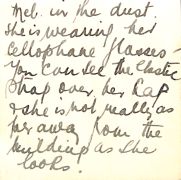 Meb. in the dust
she is wearing her
cellophane glasses -
you can see the elastic
strap over her cap
& she is not really as
far away from the
building as she
looks.